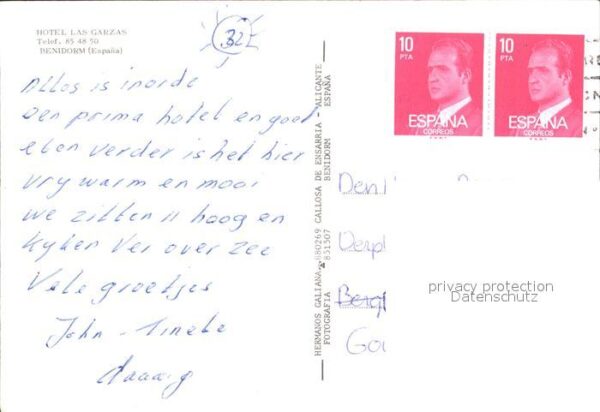 HOTEL LAS GARZAS
Telef. 85 48 50
BENIDORM (España)
32
Alles is in orde
Een prima hotel en goed
eten verder is het hier
vry warm en mooi
we zitten 11 hoog en
kyken ver over zee
Vele groetjes
John - Tineke
HERMANOS GALIANA 880269 CALLOSA DE ENSARRIA - ALICANTE
FOTOGRAFIA 851507 BENIDORM ESPAÑA
10 PTA
ESPAÑA
CORREOS
10 PTA
ESPAÑA
CORREOS
Den
Derpl
Berg
Go
privacy protection
Datenschutz